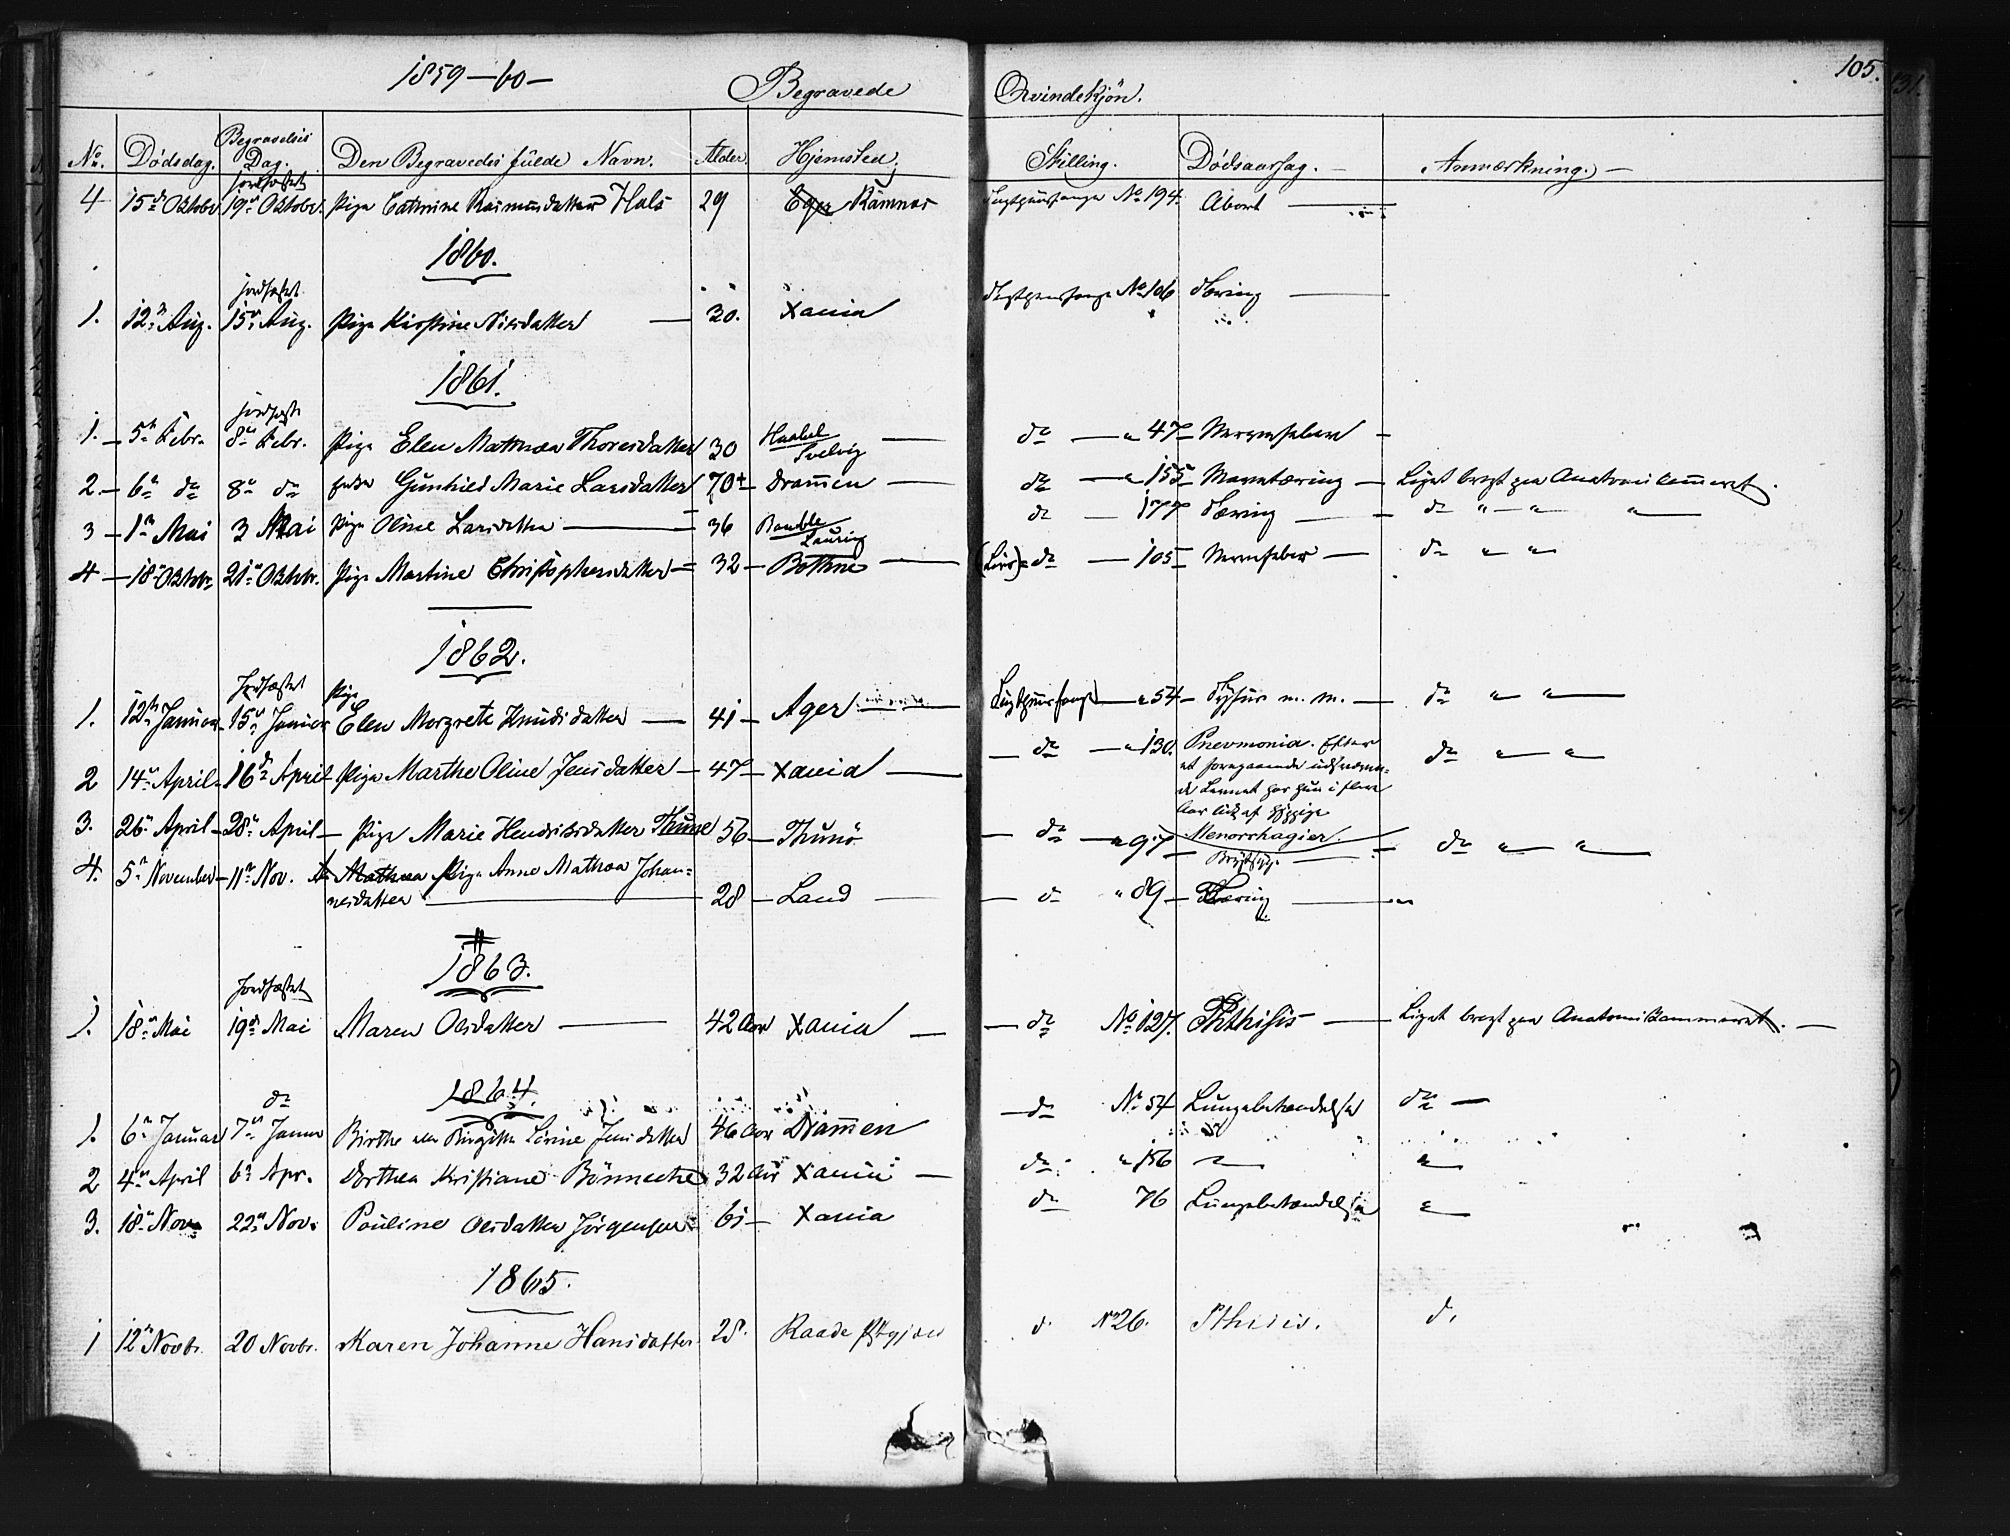 1859-60-
Begravede
Qvindekjön.
105.
No. Dödsdag. Begravelses Dag. Den Begravedes fulde Navn. Alder. Hjemsted. Stilling. Dödsaarsag. Anmærkning.
jordfæstet
4 15de Oktobr 19de Oktobr. Pige Cathrine Rasmusdatter Hals 29 Eger Ramnæs Tugthusfange No 194. Abort
1860.
jordfæstet
1. 12te Aug. 15de Aug. Pige Kirstine Nilsdatter 30. Xania Tugthusfange No 106 Tæring
1861.
jordfæstet
1. 5te Febr. 8de Febr. Pige Elen Mathea Thoresdatter 30 Svelvig do " 47 Nervefeber
2 6te do 8de do Gunhild Marie Larsdatter 70 Drammen do " 155 Marvtæring Liget bragt paa Anatomikammeret.
3 1ste Mai 3 Mai Pige Oline Larsdatter 36 Bamble do 177 Tæring do " "
4 18de Oktobr 21de Oktobr. Pige Martine Christophersdatter 32 Bothne (Livs) do 105 Nervefeber do " "
1862.
jordfæstet Pige
1. 12te Januar 15de Januar Elen Margrete Knudsdatter 41 Ager Tugthusfange " 54 Tyfus m. m. do " "
2 14de April 16de April Pige Marthe Oline Jensdatter 47 Xania do " 130. Pnevmonia. Efter
et foregaaende
har hun i flere
Aar lidt af hyppige
Menorrhagier. do " "
3. 26de April 28de April Pige Marie Hendriksdatter Thune 56 Thunö do " 97 Brystsyge do " "
4. 5te November 11te Nov. Mathea Pige Anne Mathea Johan=
nesdatter 28 Land do " 89 Tæring
1863.
jordfæstet
1. 18de Mai 19de Mai Maren Olsdatter 42 Aar Xania do No 127. Phthisis Liget bragt paa Anatomikammeret.
1864.
do
1. 6te Januar 7de Januar Birthe eller Birgitte Lovine Jensdatter 46 Aar Drammen do No 54 Lungebetændelse do
2 4de April 6te Apr. Dorthea Kristiane Bönnecke 32 Aar Xania do " 156 " "
3. 18de Nov. 22de Nov. Pauline Olsdatter Jörgensen 61 Xania do 76 Lungebetændelse "
1865.
1 12te Novbr. 20 Novbr. Karen Johanne Hansdatter 28. Raade Pstgjæld d. No 26. Pthisis. d.